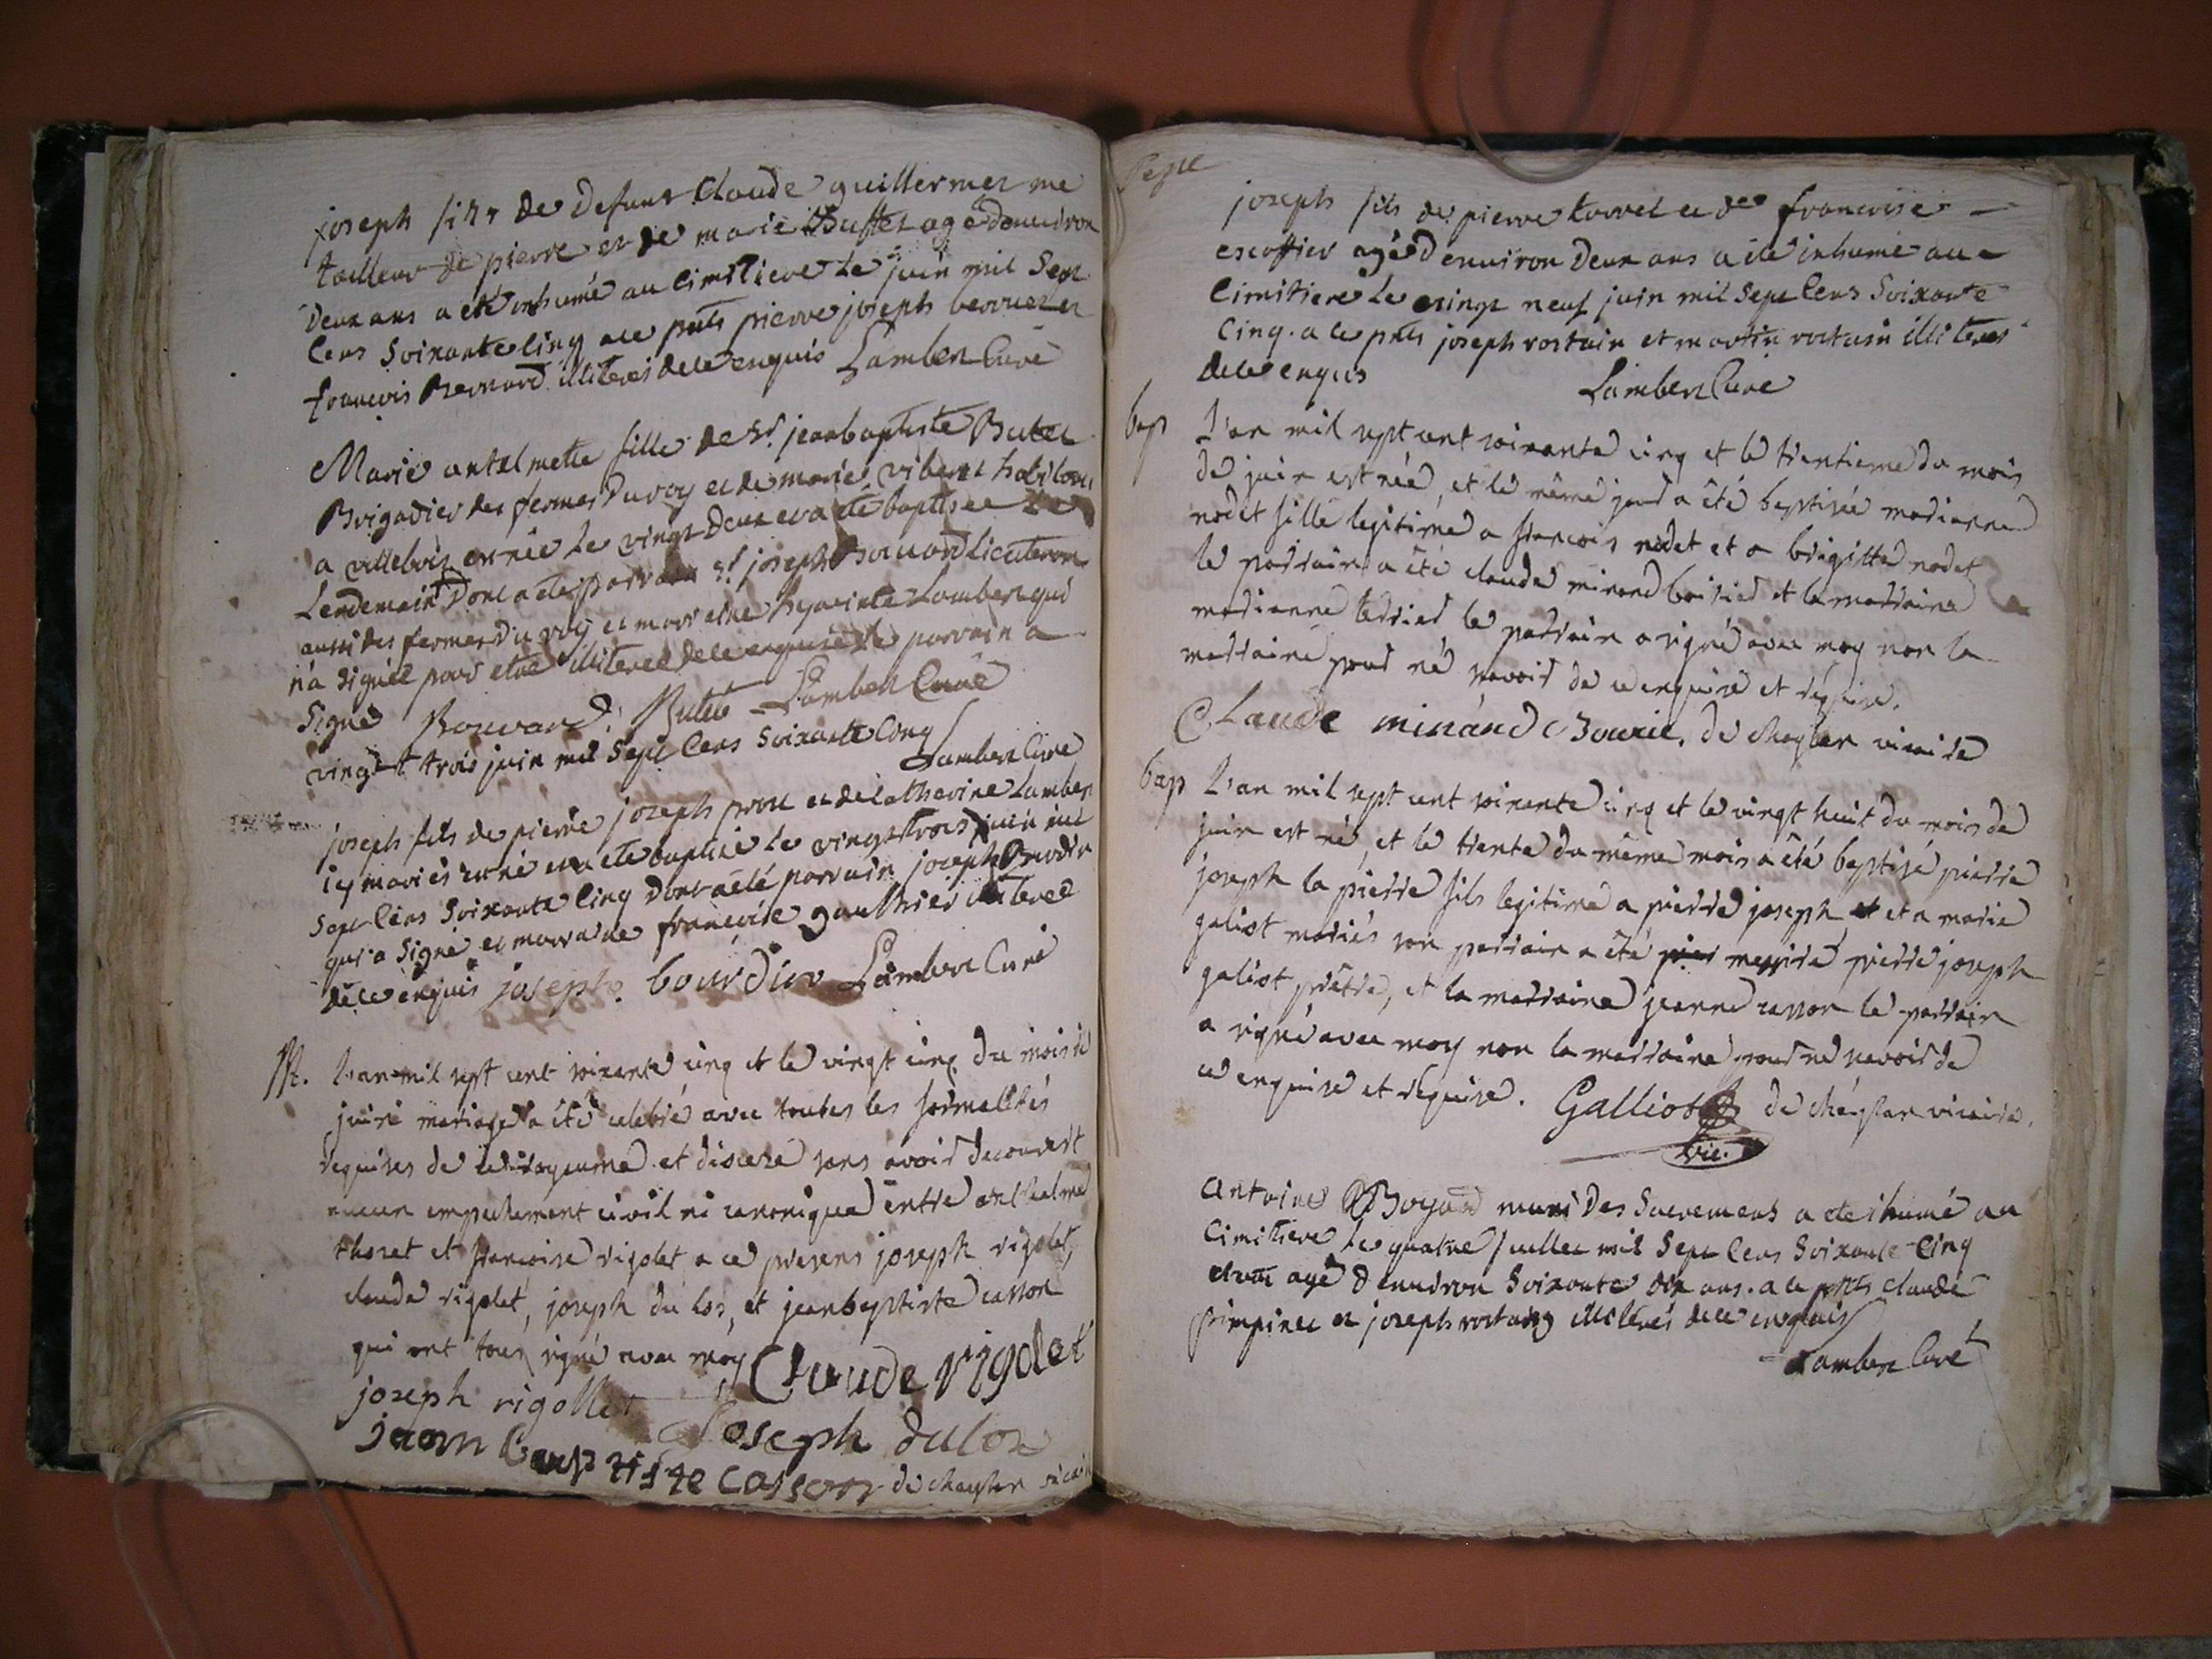 joseph fils de defunt Claude guillermet me
tailleur de pierre et de marie Buffet agé denuiron
deux ans a eté inhumé au Cimitiere le juin mil Sept
Cens Soixante Cinq a ce pnts pierre joseph berruet et
francois Bernard illiterés de ce enquis Lambert Curé
Marie antelmette fille de Sr. jeanbaptiste Butet
Brigadier des fermes du roy et de marie vibert habitans
a villebois est née le vingt deux et a eté baptisee le
Lendemain dont a eté parrain sr joseph Bouuard Lieutenant
aussi des fermes du roy et marreine hyacinte Lambert qui
n'a signé pour etre illiteree de ce enquise le parrain a
Signé Bouuard Butet Lambert Curé
vingt trois juin mil Sept Cens Soixante Cinq
Lambert Curé
joseph fils de pierre joseph prou et de Catherine Lambert
icy mariés est né et a eté baptisé le vingt trois juin mil
Sept Cens Soixante Cinq dont a eté parrain joseph Bourdin
qui a Signé et marraine francoise gauthier illiteree
de ce enquis joseph bourdin Lambert Curé
M. L'an mil sept cent soixante cinq et le vingt cinq du mois de
juin mariage a été celebré avec toutes les formalités
requises de ce royaume et diocese sans avoir decouvert
aucun empechement civil ni canonique entre anthelme
thoret et francoise rigolet a ce presens joseph rigolet,
claude rigolet, joseph du los, et jeanbaptiste casson
qui ont tous signé avec moy Claude rigolet
joseph rigollet
Joseph dulos
jean baptiste casson de cheyslan vicaire
Sepe
joseph fils de pierre torret et de francoise
escoffier agé denuiron deux ans a eté inhumé au
Cimitiere le vingt neuf juin mil Sept Cens Soixante
Cinq. a ce pnts joseph rostain et martin rostain illiterés
de ce enquis Lambert Curé
bap L'an mil sept cent soixante cinq et le trentieme du mois
de juin est née, et le même jour a été baptisée marianne
nodet fille legitime a francois nodet et a brigitte nodet
le parrain a été claude minand boirie et la marraine
marianne terrier le parrain a signé avec moy non la
marraine pour ne savoir de ce enquise et requise.
Claude minand Bourie, de cheyslan vicaire
bap L'an mil sept cent soixante cinq et le vingt huit du mois de
juin est né, et le trente du même mois a été baptisé pierre
joseph la pierre fils legitime a pierre joseph et a marie
galiot mariés son parrain a été messire pierre joseph
galiot prêtre, et la marraine jeanne casson le parrain
a signé avec moy non la marraine pour ne savoir de
ce enquise et requise. Galliot de cheyslan vicaire.
vic.
Antoine Boyard muni des Sacremens a ete ihumé au
Cimitiere le quatre juillet mil Sept Cens Soixante Cinq
agé denuiron Soixante dix ans. a ce pnts claude
pimpinet et joseph rostaing illiterés de ce enquis
Lambert Curé